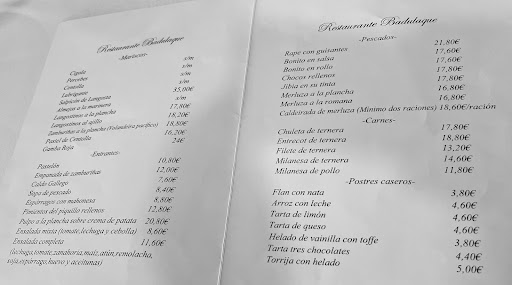 Restaurante Badulaque
-Mariscos-
Cigala s/m
Percebes s/m
Centolla s/m
Lubrigante s/m
Salpicón de Langosta 35,00€
Almejas a la marinera s/m
Langostinos a la plancha 17,80€
Langostinos al ajillo 18,20€
Zamburiñas a la plancha (Volandeira pacífico) 18,80€
Pastel de Centolla 16,20€
Gamba Roja 24€
-Entrantes-
Pastelón 10,80€
Empanada de zamburiñas 12,00€
Caldo Gallego 7,60€
Sopa de pescado 8,40€
Espárragos con mahonesa 8,80€
Pimientos del piquillo rellenos 12,80€
Pulpo a la plancha sobre crema de patata 20,80€
Ensalada mixta (tomate, lechuga y cebolla) 8,60€
Ensalada completa 11,60€
(lechuga,tomate,zanahorsa,maiz,atún,remolacha,
soja,espárrago,huevo y aceitunas)
Restaurante Badulaque
-Pescados-
Rape con guisantes 21,80€
Bonito en salsa 17,60€
Bonito en rollo 17,60€
Chocos rellenos 17,80€
Jibia en su tinta 17,80€
Merluza a la plancha 16,80€
Merluza a la romana 16,80€
Caldeirada de merluza (Mínimo dos raciones) 18,60€/ración
-Carnes-
Chuleta de ternera 17,80€
Entrecot de ternera 18,80€
Filete de ternera 13,20€
Milanesa de ternera 14,60€
Milanesa de pollo 11,80€
-Postres caseros-
Flan con nata 3,80€
Arroz con leche 4,60€
Tarta de limón 4,60€
Tarta de queso 4,60€
Helado de vainilla con toffe 3,80€
Tarta tres chocolates 4,40€
Torrija con helado 5,00€